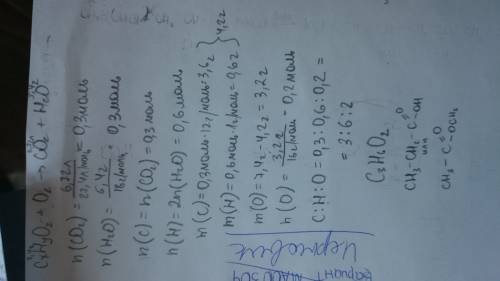 CxHyO2 + O2 → CO2 + H2O
n(CO2) = 6,72л / 22,4л/моль = 0,3моль
n(H2O) = 5,4г / 18г/моль = 0,3моль
n(C) = n(CO2) = 0,3моль
n(H) = 2n(H2O) = 0,6моль
m(C) = 0,3моль·12г/моль = 3,6г
m(H) = 0,6моль·1г/моль = 0,6г } 4,2г
m(O) = 7,4г - 4,2г = 3,2г
n(O) = 3,2г / 16г/моль = 0,2моль
C:H:O = 0,3:0,6:0,2 =
= 3:6:2
C3H6O2
CH3-CH2-C=O-OH
или
CH3-C=O-OCH3
Черновик
Вариант